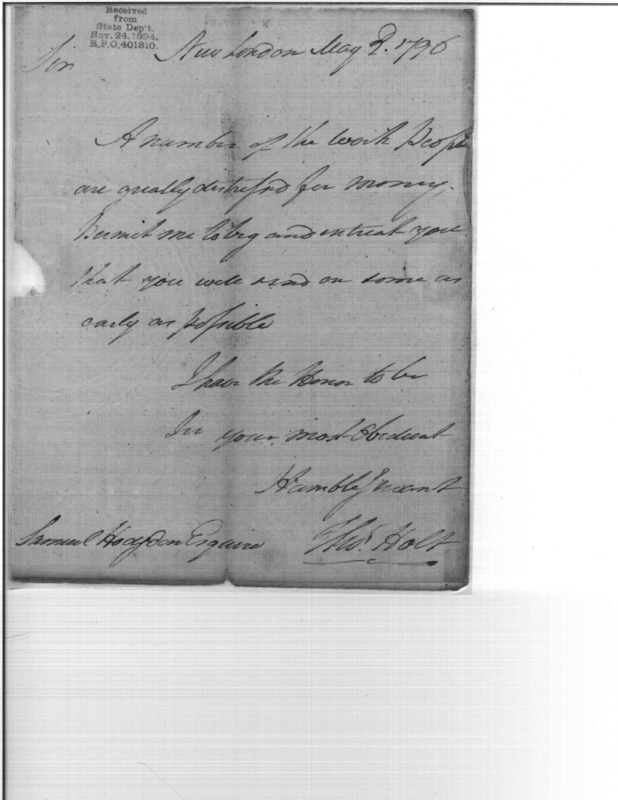 Received
from
State Dep't.
Nov. 24, 1894.
R.P.O. 401310.
New London May 2. 1796
Sir
A number of the work People
are greatly distressd for money.
Permit me to beg and entreat you
that you will send on some as
early as possible
I have the Honor to be
Sir your most Obedient
Humble Servant
Samuel Hodgdon Esquire Thos. Holt